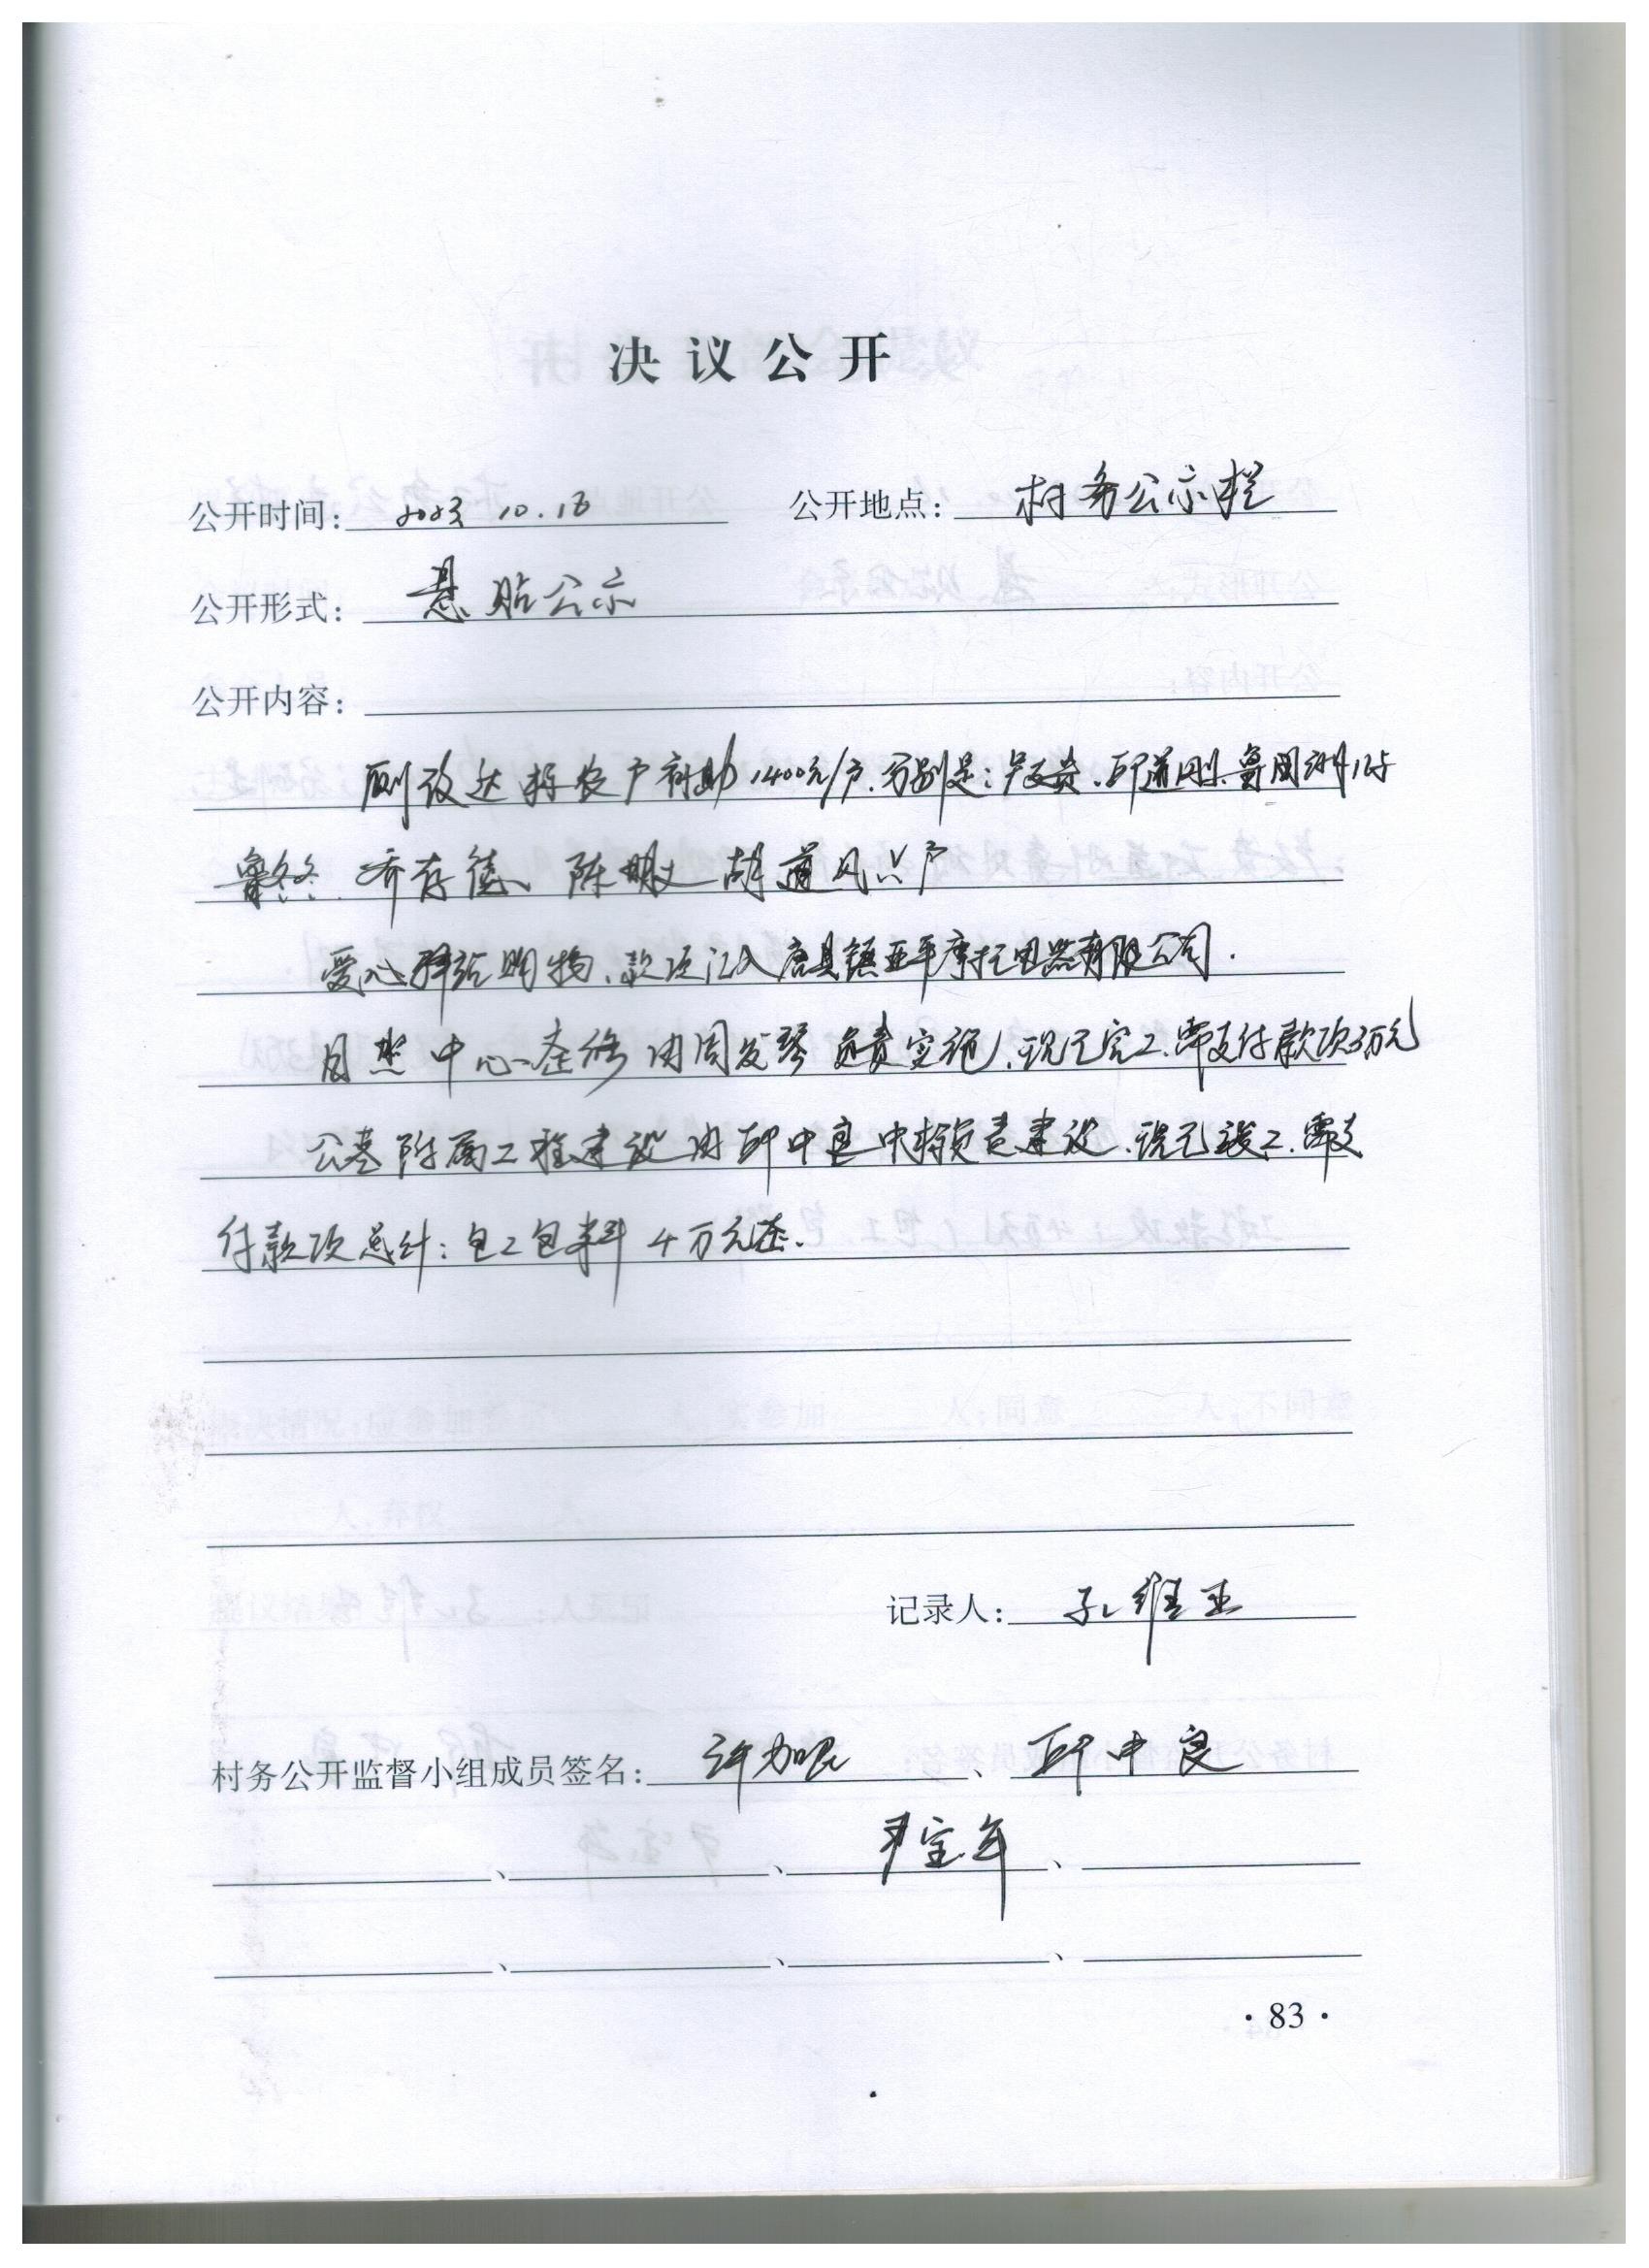 决议公开
公开时间: 2023 10.16 公开地点: 村务公示栏
公开形式: 悬贴公示
公开内容:
厕改达标农户补助1400元/户.分别是: 贵.邱道刚.鲁国
鲁冬冬.乔存德、陈明义 胡道凤 户
爱心驿站购物、款项汇入唐县镇亚平摩托电器有限公司.
日照中心查修由周发琴负责实施.现已完工.需支付款项3万元
公墓附属工程建设由邱中良中标负责建设.现已竣工.需支
付款项总计: 包工包料4万元整.
记录人: 孔维玉
村务公开监督小组成员签名: 许加 、邱中良
、 、 尹宝年 、
、 、 、
·83·